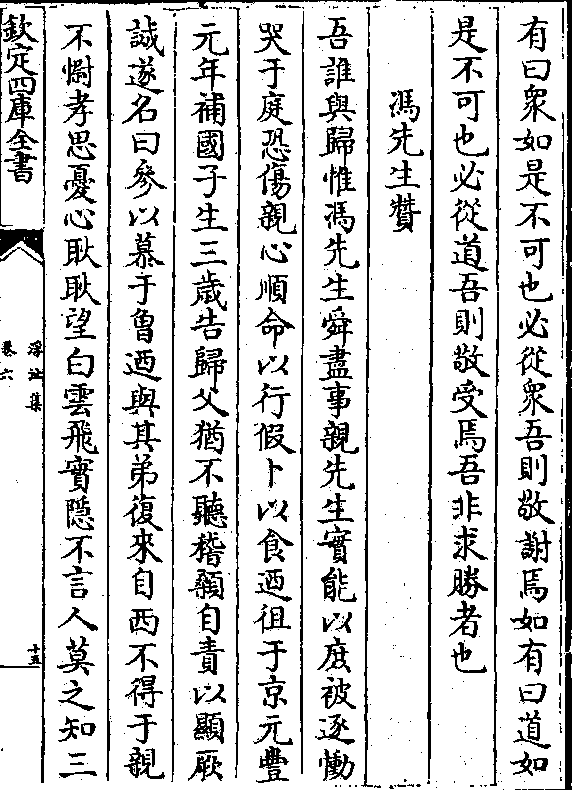 有曰衆如是不可也必從衆吾則敬謝焉如有曰道如
是不可也必從道吾則敬受焉吾非求勝者也
馮先生贊
吾誰與歸惟馮先生舜盡事親先生實能以庶被逐慟
哭于庭恐傷親心順命以行假卜以食迺徂于京元豐
元年補國子生三歲告歸父猶不聽稽顙自責以顯厥
誠遂名曰參以慕于魯迺與其弟復來自西不得于親
不懈孝思憂心耿耿望白雲飛實隱不言人莫之知三
欽定四庫全書
浮沚集
卷六
十五